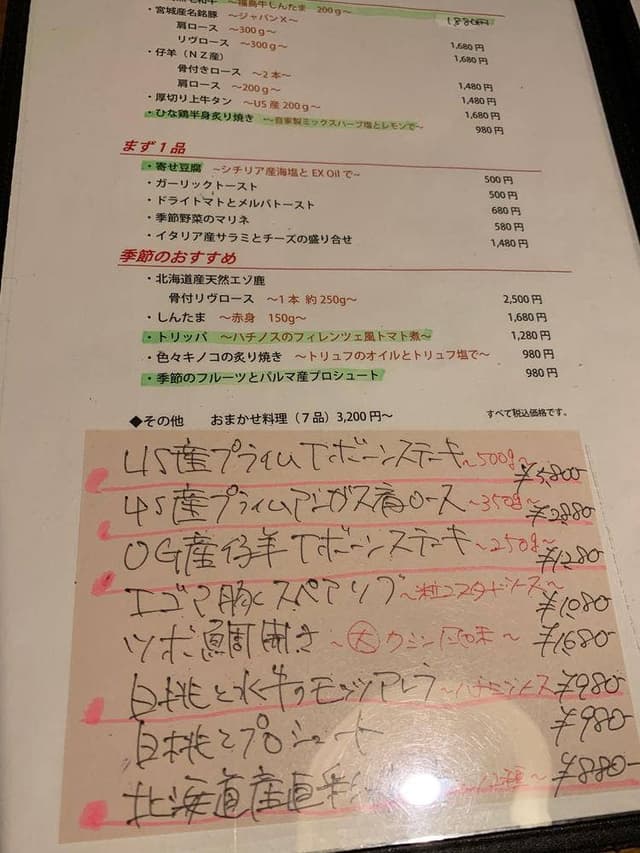 牛 ～福島牛しんたま 200g～
・宮城産名銘豚 ～ジャパンX～
肩ロース ～300g～
リヴロース ～300g～ 1,680円
・仔羊（NZ産） 1,680円
骨付きロース ～2本～
肩ロース ～200g～ 1,480円
・厚切り上牛タン ～US産200g～ 1,480円
・ひな鶏半身炙り焼き ～自家製ミックスハーブ塩とレモンで～ 1,680円
980円
まず1品
・寄せ豆腐 ～シチリア産海塩とEX Oilで～ 500円
・ガーリックトースト 500円
・ドライトマトとメルバトースト 680円
・季節野菜のマリネ 580円
・イタリア産サラミとチーズの盛り合せ 1,480円
季節のおすすめ
・北海道産天然エゾ鹿
骨付リヴロース ～1本 約250g～ 2,500円
・しんたま ～赤身 150g～ 1,680円
・トリッパ ～ハチノスのフィレンツェ風トマト煮～ 1,280円
・色々キノコの炙り焼き ～トリュフのオイルとトリュフ塩で～ 980円
・季節のフルーツとパルマ産プロシュート 980円
◆その他 おまかせ料理（7品）3,200円～ すべて税込価格です。
US産プライムTボーンステーキ ～500g～ ¥5,800-
US産プライムアンガス肩ロース ～350g～ ¥2,880-
OG産仔羊Tボーンステーキ ～250g～ ¥1,280-
エゴマ豚スペアリブ ～粒マスタードソース～ ¥1,080-
ツボ鯛開き ～大 ¥1,680-
白桃と水牛のモッツアレラ ～ハチミツソース ¥980-
白桃とプロシュート ¥980-
北海道産直 2種～ ¥880-